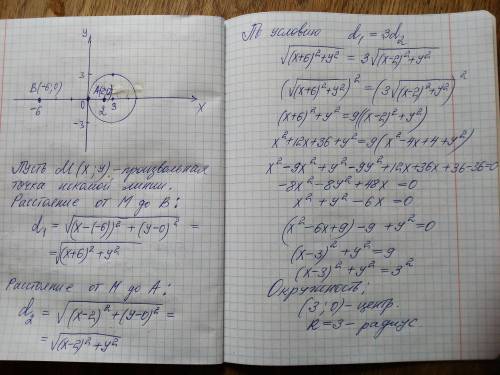 y
3
B(-6;0)
A(2;0)
-6
0
2
3
x
-3
Пусть M(x;y) - произвольная
точка искомой линии.
Расстояние от M до B:
d₁ = √((x-(-6))² + (y-0)²) =
= √((x+6)² + y²)
Расстояние от M до A:
d₂ = √((x-2)² + (y-0)²) =
= √((x-2)² + y²)
По условию d₁ = 3d₂
√((x+6)² + y²) = 3√((x-2)² + y²)
(√((x+6)² + y²))² = (3√((x-2)² + y²))²
(x+6)² + y² = 9((x-2)² + y²)
x² + 12x + 36 + y² = 9(x² - 4x + 4 + y²)
x² - 9x² + y² - 9y² + 12x + 36x + 36 - 36 = 0
-8x² - 8y² + 48x = 0
x² + y² - 6x = 0
(x² - 6x + 9) - 9 + y² = 0
(x-3)² + y² = 9
(x-3)² + y² = 3²
Окружность:
(3;0) - центр.
R = 3 - радиус